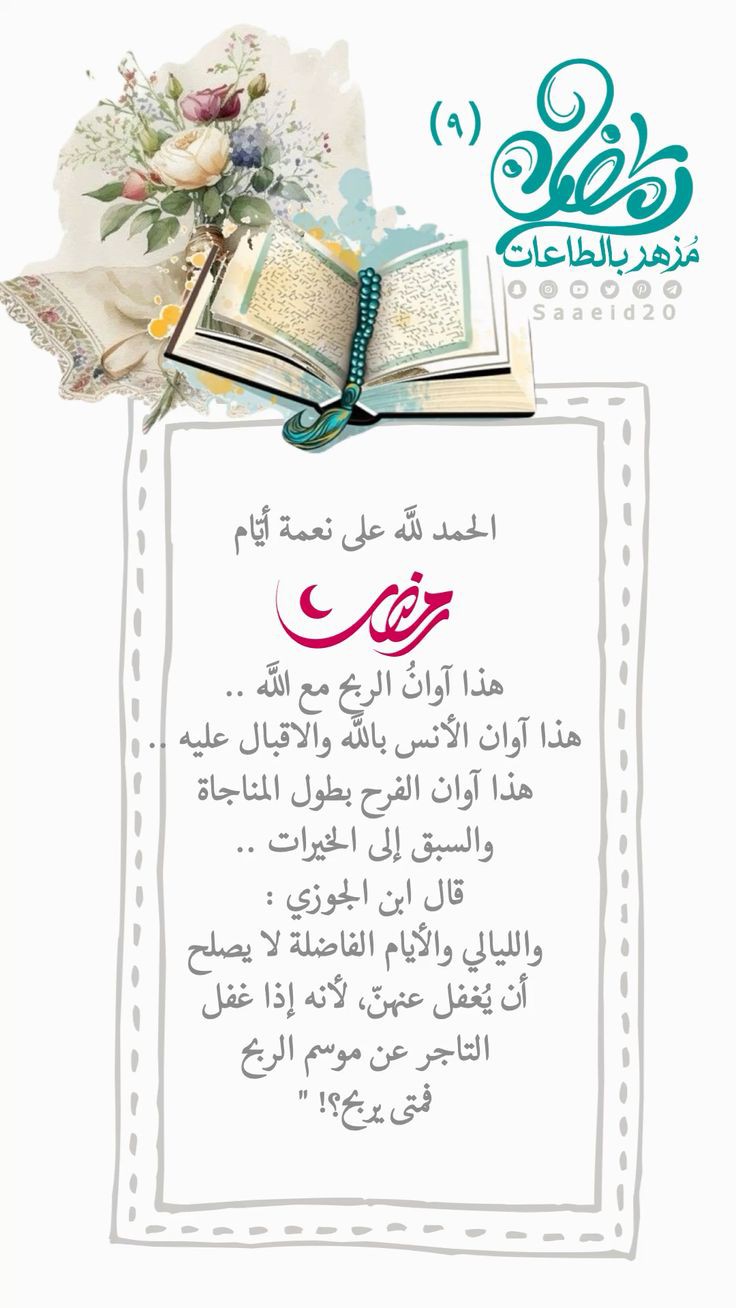 (٩)
رمضان
مُزهر بالطاعات
Saaeid20
الحمد للَّه على نعمة أيّام
رمضان
هذا آوانُ الربح مع اللَّه ..
هذا آوان الأنس باللَّه والاقبال عليه ..
هذا آوان الفرح بطول المناجاة
والسبق إلى الخيرات ..
قال ابن الجوزي :
والليالي والأيام الفاضلة لا يصلح
أن يُغفل عنهنّ، لأنه إذا غفل
التاجر عن موسم الربح
فمتى يربح؟! "